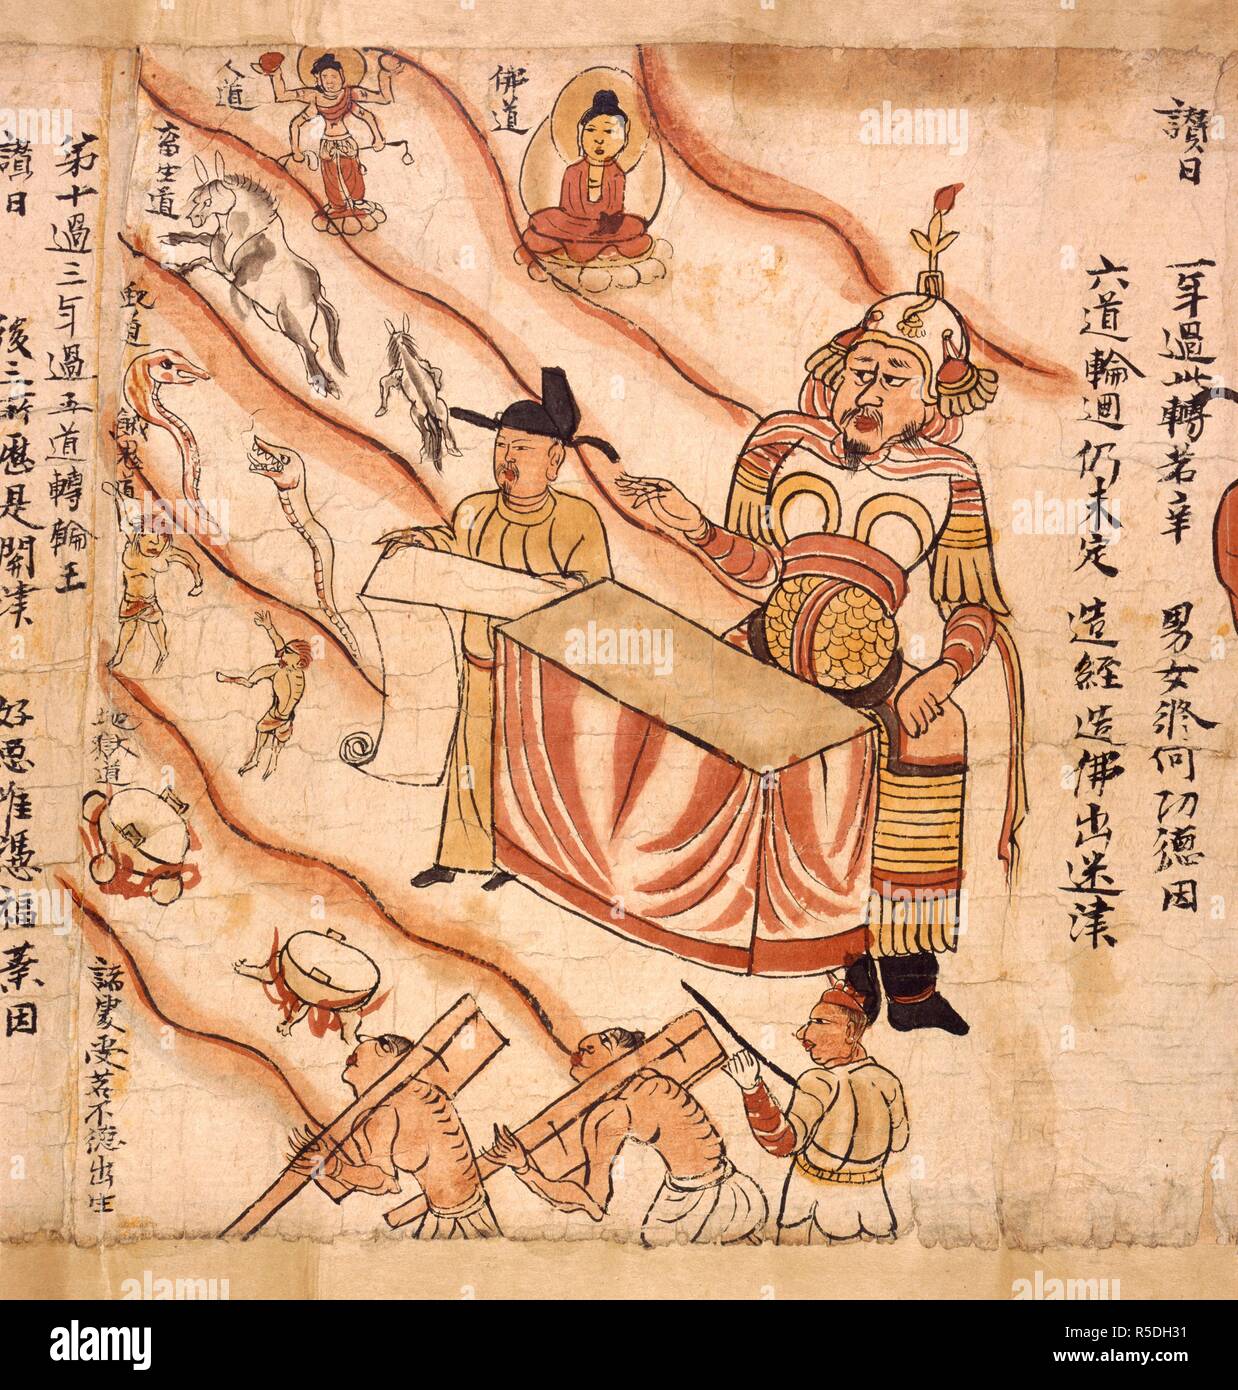 讚曰
一年過此轉苦辛 男女修何功德因
六道輪迴仍未定 造經造佛出迷津
佛道
人道
畜生道
餓鬼道
地獄道
第十過三年過五道轉輪王
讚曰 後三所歷是關津 好惡唯憑福業因
alamy
Image ID: R5DH31
www.alamy.com